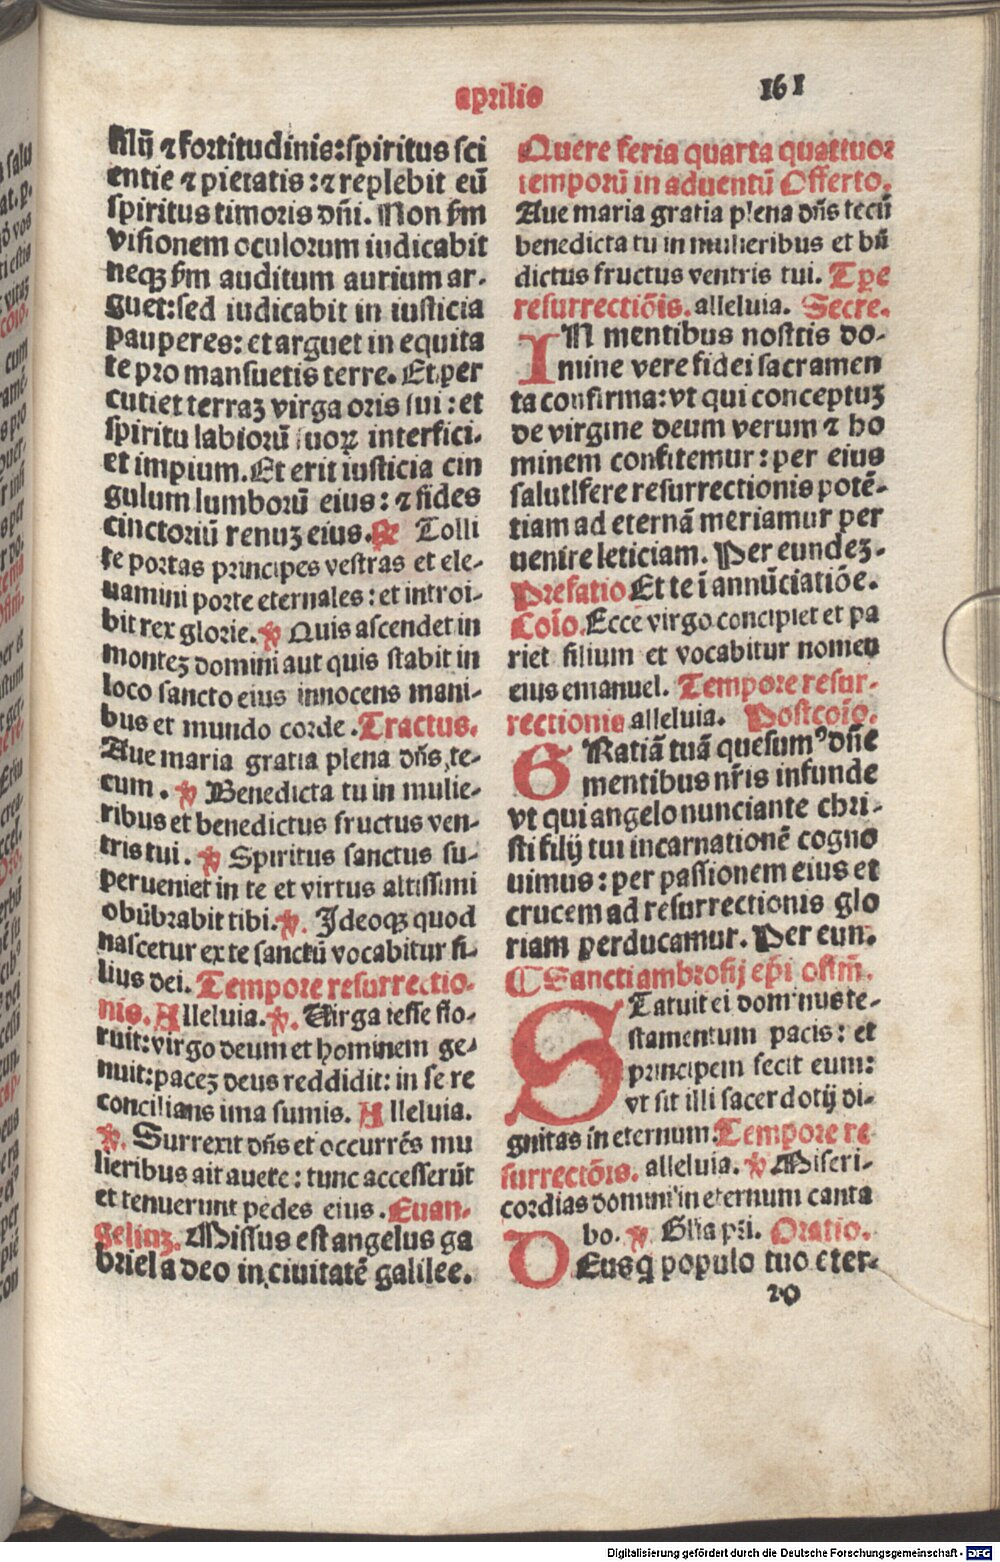 aprilis
161
silij ⁊ fortitudinis: spiritus sci
entie ⁊ pietatis: ⁊ replebit eū
spiritus timoris dñi. Non s̄m
visionem oculorum iudicabit
neqꝫ s̄m auditum aurium ar-
guet: sed iudicabit in iusticia
pauperes: et arguet in equita
te pro mansuetis terre. Et per
cutiet terraꝫ virga oris sui: et
spiritu labiorū suoꝝ interfici-
et impium. Et erit iusticia cin
gulum lumborū eius: ⁊ fides
cinctoriū renuꝫ eius. ℟ Tolli
te portas principes vestras et ele-
uamini porte eternales: et introi-
bit rex glorie. ℣ Quis ascendet in
monteꝫ domini aut quis stabit in
loco sancto eius innocens mani-
bus et mundo corde. Tractus.
Aue maria gratia plena dñs te-
cum. ℣ Benedicta tu in mulie-
ribus et benedictus fructus ven-
tris tui. ℣ Spiritus sanctus su-
perueniet in te et virtus altissimi
obūbrabit tibi. ℣. Ideoqꝫ quod
nascetur ex te sanctū vocabitur fi-
lius dei. Tempore resurrectio-
nis. Alleluia. ℣. Virga iesse flo-
ruit: virgo deum et hominem ge-
nuit: paceꝫ deus reddidit: in se re
concilians ima sumis. Alleluia.
℣. Surrexit dñs et occurrēs mu
lieribus ait auete: tunc accesserūt
et tenuerunt pedes eius. Euan-
geliuꝫ. Missus est angelus ga
briel a deo in ciuitatē galilee.
Quere feria quarta quattuor
temporū in aduentū Offerto.
Aue maria gratia plena dñs tecū
benedicta tu in mulieribus et bñ
dictus fructus ventris tui. Tꝑe
resurrectiōis. alleluia. Secre.
IN mentibus nostris do-
mine vere fidei sacramen
ta confirma: vt qui conceptuꝫ
de virgine deum verum ⁊ ho
minem confitemur: per eius
salutifere resurrectionis potē-
tiam ad eternā meriamur per
uenire leticiam. Per eundeꝫ.
Prefatio Et te ī annūciatiōe.
Cōio. Ecce virgo concipiet et pa
riet filium et vocabitur nomen
eius emanuel. Tempore resur-
rectionis alleluia. Postcōio.
GRatiā tuā quesumꝰ dñe
mentibus nr̄is infunde
vt qui angelo nunciante chri-
sti filij tui incarnationē cogno
uimus: per passionem eius et
crucem ad resurrectionis glo
riam perducamur. Per eun.
⸿ Sancti ambrosij epi offm̄.
STatuit ei dominus te-
stamentum pacis: et
principem fecit eum:
vt sit illi sacerdotij di-
gnitas in eternum. Tempore re
surrectōis. alleluia. ℣ Miseri-
cordias domini in eternum canta
bo. ℣ Glīa pri. Oratio.
DEus q̄ populo tuo eter-